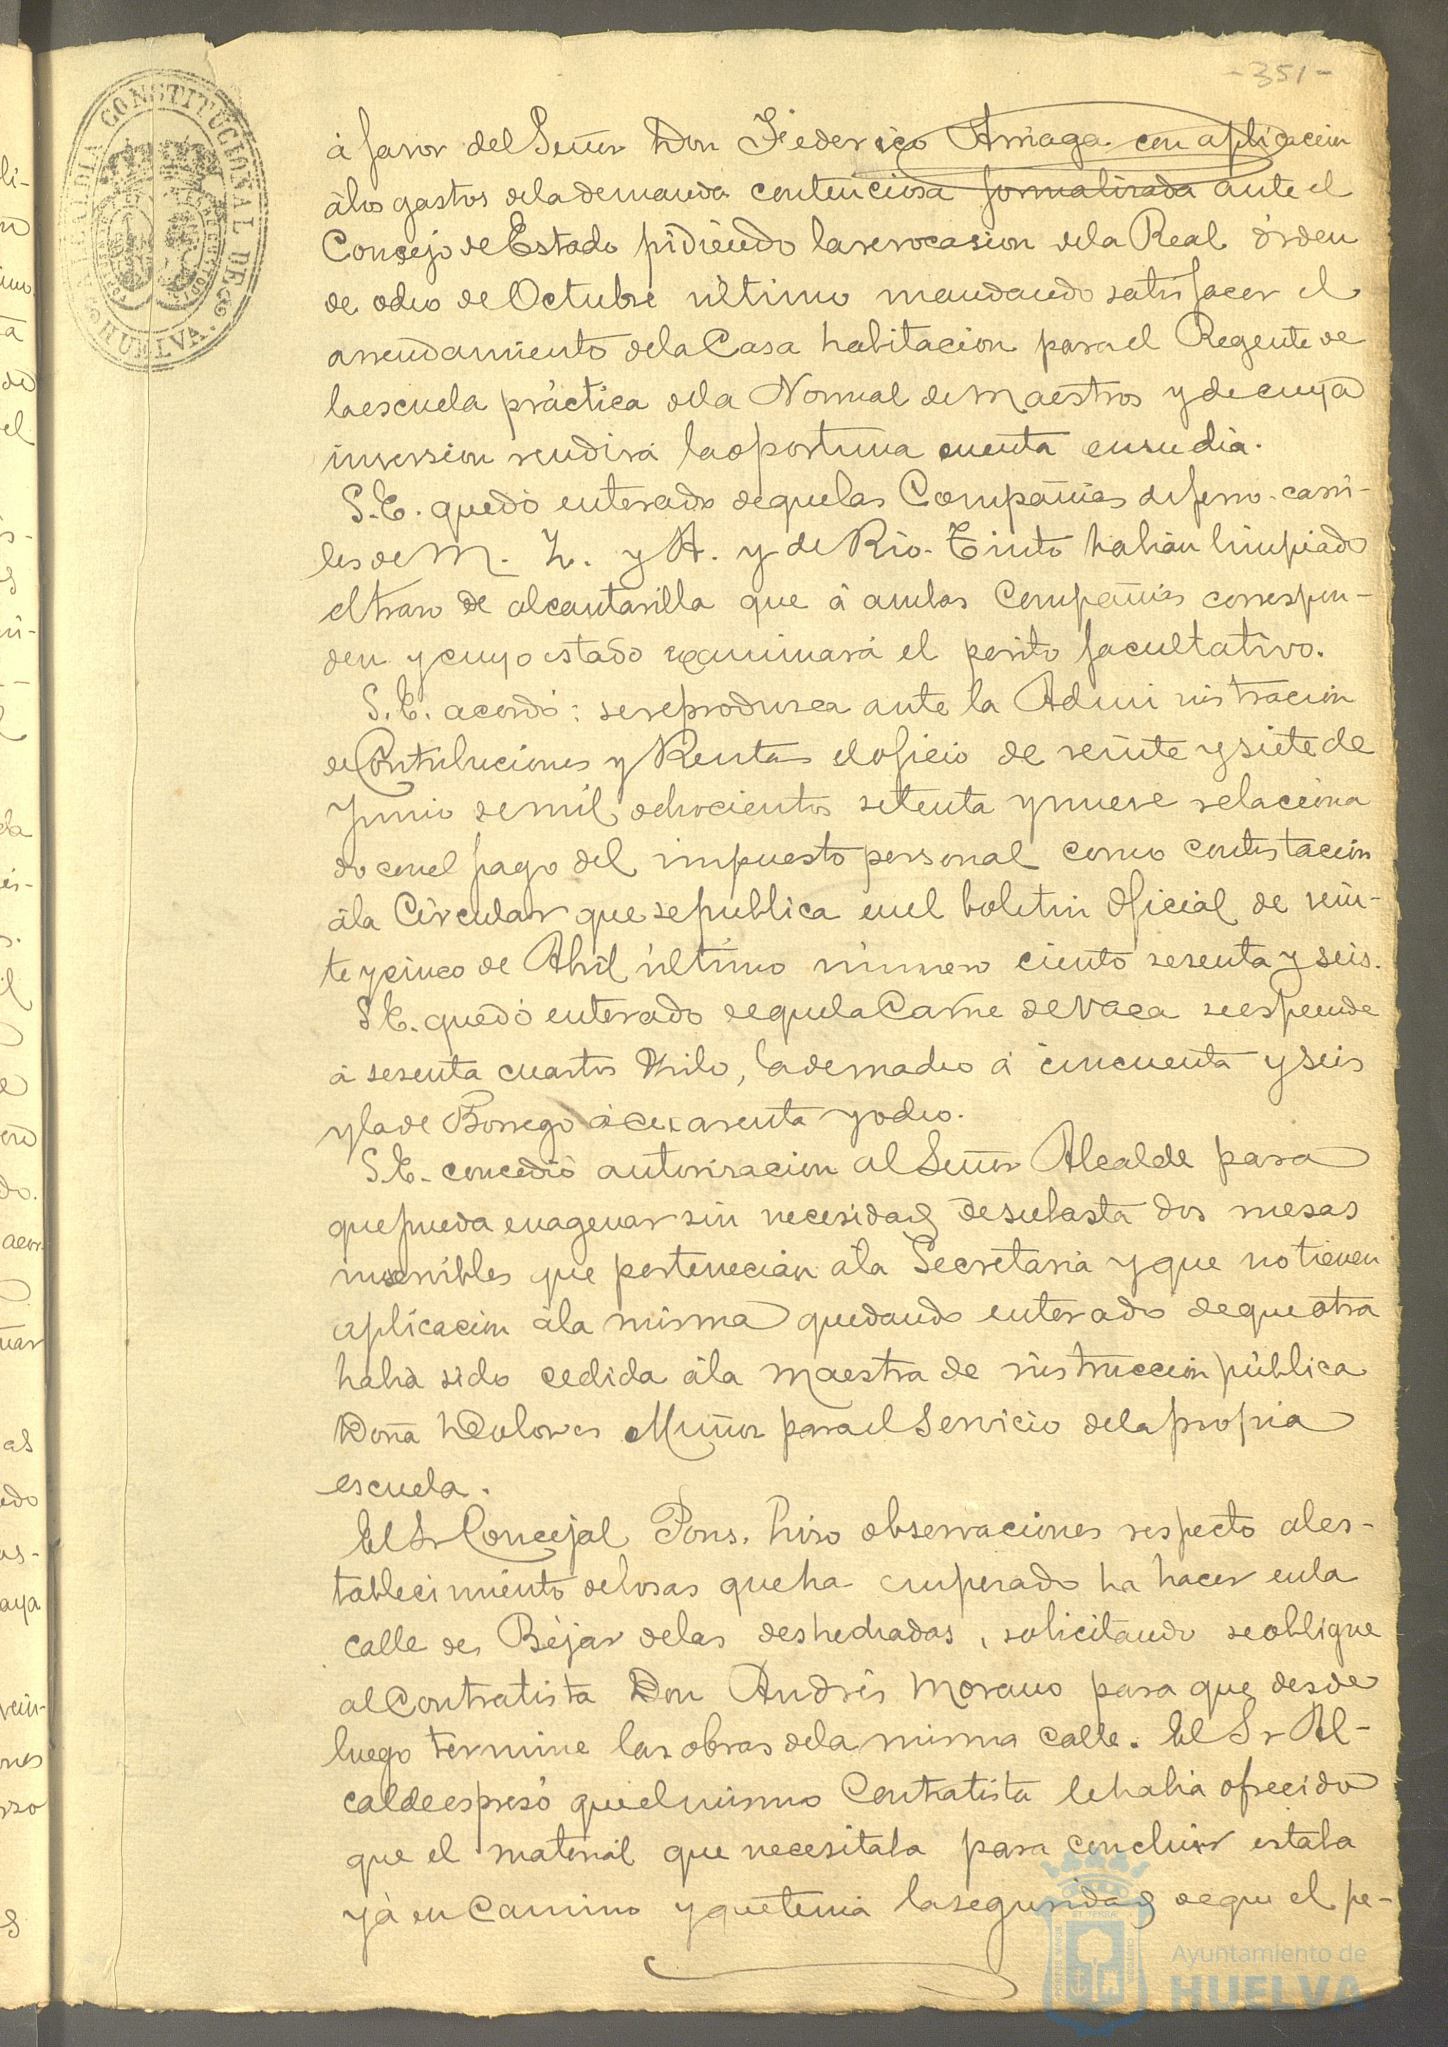 -351-
ALCALDIA CONSTITUCIONAL DE HUELVA
á favor del Señor Don Federico Arriaga con aplicacion
álos gastos dela demanda contenciosa formalizada ante el
Concejo de Estado pidiendo la revocasion dela Real órden
de ocho de Octubre último mandando satisfacer el
arrendamiento dela Casa habitacion para el Regente de
la escuela práctica dela Normal de Maestros y de cuya
inversion rendirá la oportuna cuenta en su dia.
S.E. quedó enterado de que las Compañias de ferro-carri-
les de M. Z. y A. y de Rio-Tinto habian limpiado
el trazo de alcantarilla que á ambas Compañias correspon-
den y cuyo estado examinará el perito facultativo.
S.E. acordó: se reproduzca ante la Administracion
de Contribuciones y Rentas el oficio de veinte y siete de
Junio de mil ochocientos setenta y nueve relaciona
do con el pago del impuesto personal como contestacion
ála Circular que se publica en el boletin oficial de vein-
te y cinco de Abril último número ciento sesenta y seis.
S.E. quedó enterado de que la Carne de Vaca se espende
á sesenta cuartos Kilo, la de macho á cincuenta y seis
y la de Borrego á cuarenta y ocho.
S.E. concedió autorizacion al Señor Alcalde para
que pueda enagenar sin necesidad de subasta dos mesas
inservibles que pertenecian ála Secretaria y que no tienen
aplicacion ála misma quedando enterado de que otra
habia sido cedida ála Maestra de instruccion pública
Doña Dolores Muñoz para el Servicio de la propia
escuela.
El Sr Concejal Pons, hizo observaciones respecto al es-
tablecimiento de losas que ha empezado ha hacer en la
calle de Béjar delas deshechadas, solicitando se obligue
al Contratista Don Andrés Morano para que desde
luego termine las obras dela misma calle. El Sr Al-
calde espresó que el mismo Contratista le habia ofrecido
que el material que necesitaba para concluir estaba
yá en Camino y que tenia la seguridad de que el pe-
Ayuntamiento de
HUELVA